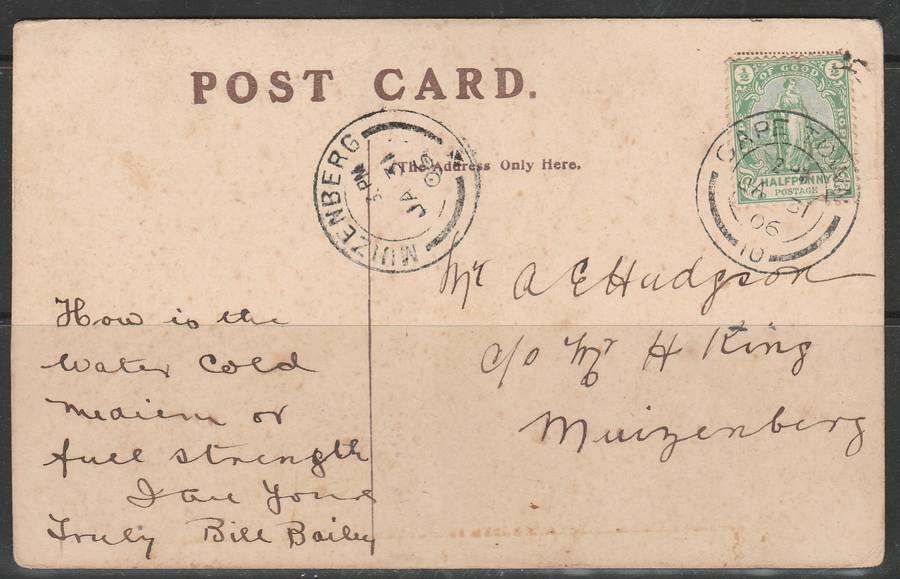 POST CARD.
The Address Only Here.
½ OF GOOD ½
HALFPENNY
POSTAGE
CAPE TOWN
JA 31
06
10
MUIZENBERG
PM
JA 31
06
Mr A E Hudgson
c/o Mr H King
Muizenberg
How is the
Water Cold
Medium or
full strength
I am Yours
Truly Bill Bailey